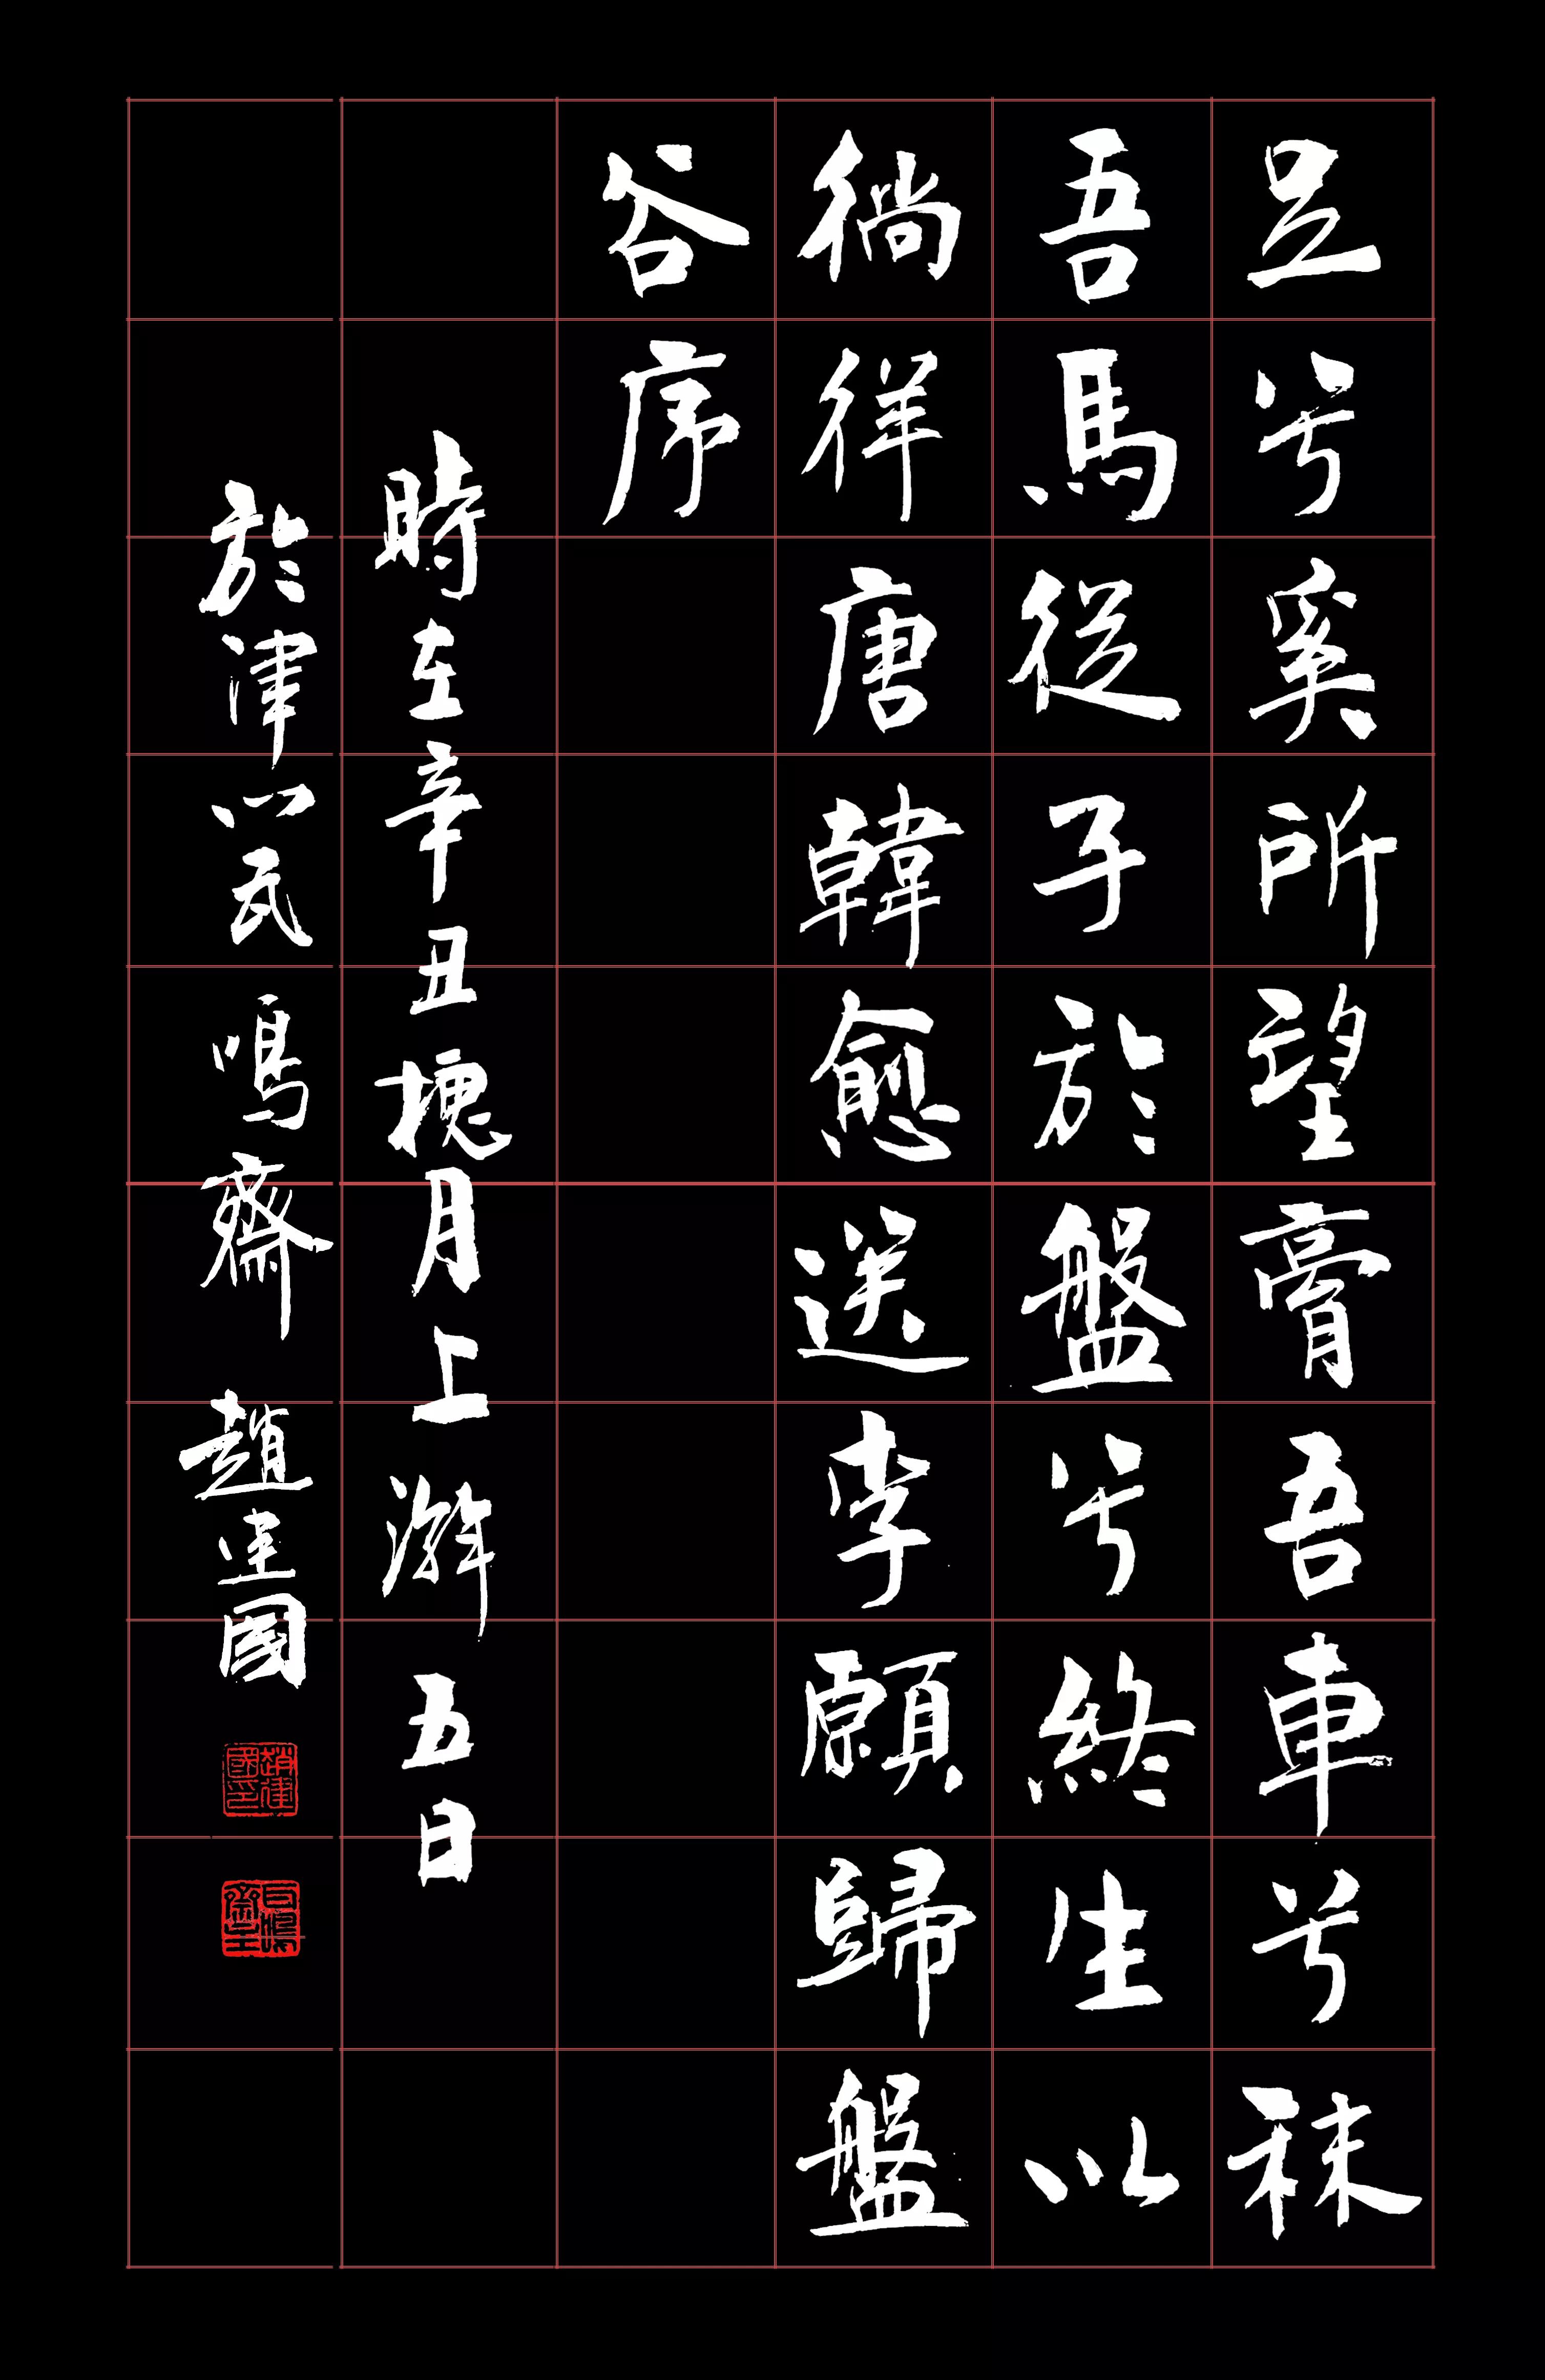 足兮奚所望膏吾車兮秣
吾馬從子於盤兮終生以
徜徉唐韓愈送李願歸盤
谷序
時在辛丑月上澣五日
於津以瓦鳴齋趙建國
趙建國印